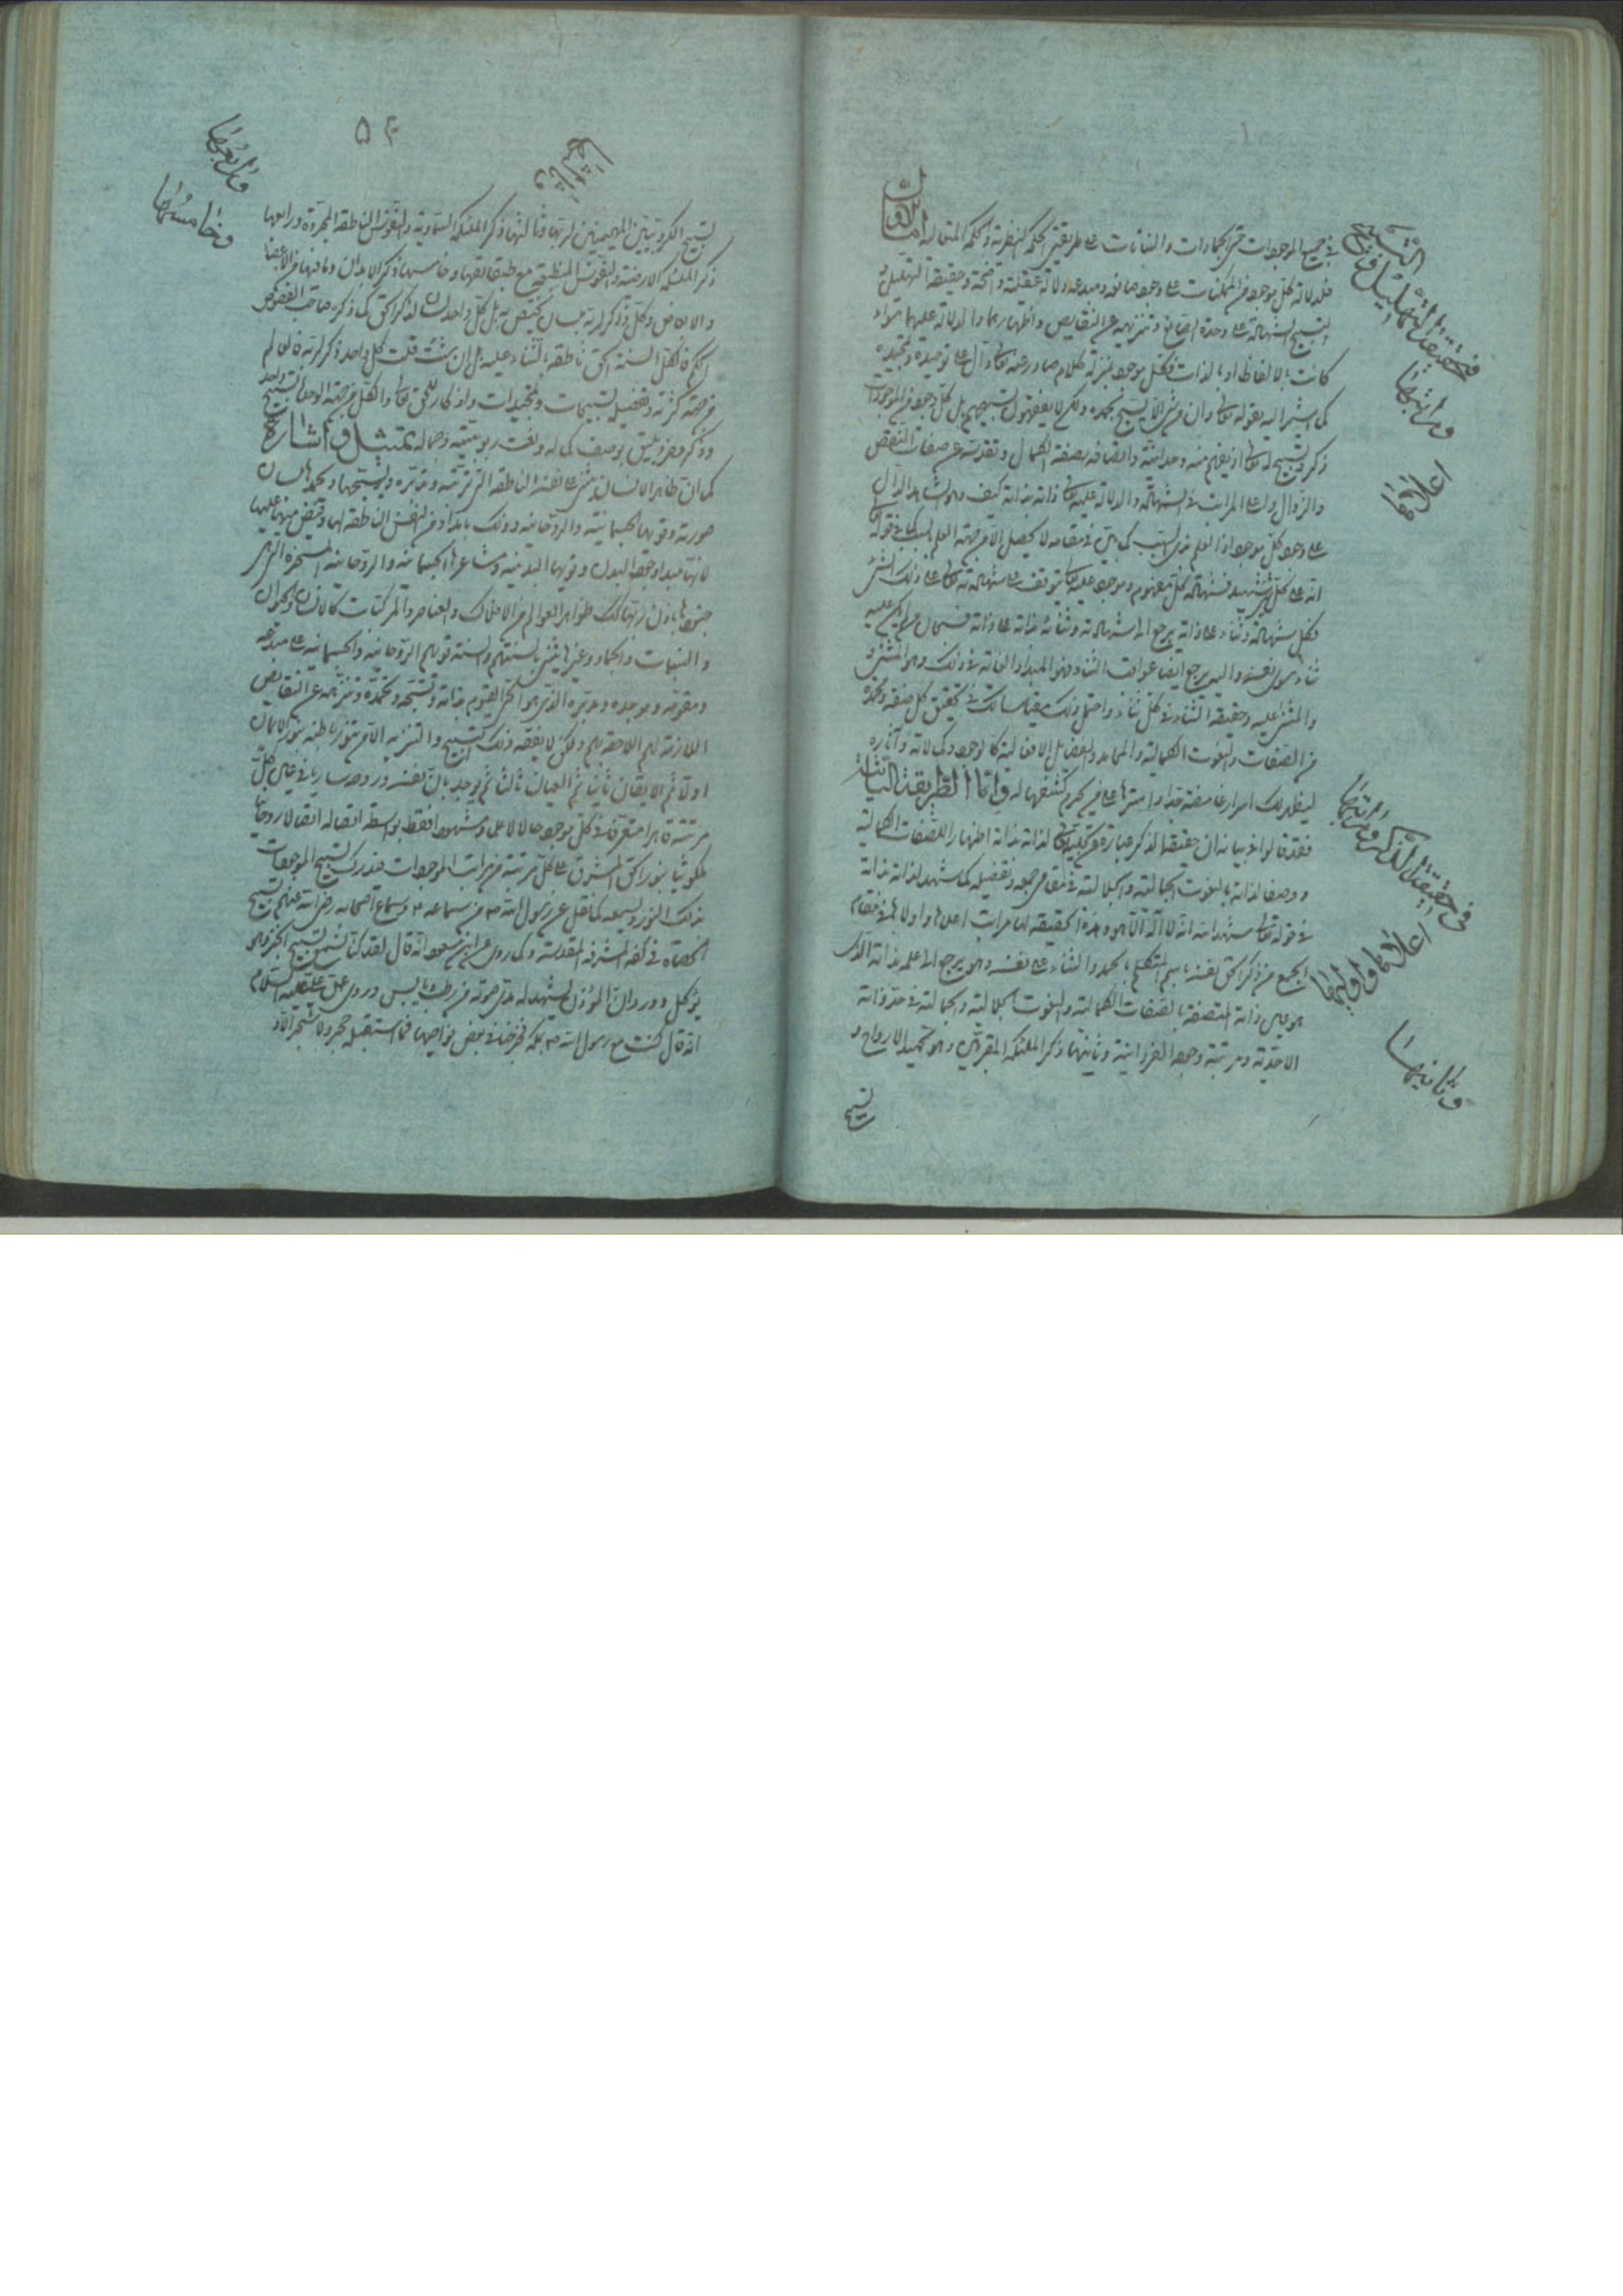 في جميع الموجودات حتى الجمادات والنباتات على طريقتي الحكمة النظرية والحكمة المتعالية اما الاول
فلدلالة كل موجود من الممكنات على وجود صانعه ومبدعه دلالة عقلية واضحة وحقيقة التهليل و
التسبيح الشهادة على وحدة الصانع وتنزيهه عن النقايص واظهارهما والدلالة عليهما سواء
كانت بالالفاظ او بالذات فكل موجود بمنزلة كلام صادر عنه تعالى دال على توحيده وتمجيده
كما اشير اليه بقوله تعالى وان من شئ الا يسبح بحمده ولكن لا يفقهون تسبيحهم بل كل وجود من الموجودات
ذكر وتسبيح له تعالى اذ يفهم منه وحدانيته واتصافه بصفة الكمال وتقدسه عن صفات النقص
والزوال
على وجود كل موجود اذ العلم بذي السبب كما بين في مقامه لا يحصل الا من جهة العلم بالسبب كما في قوله
انه على كل شئ شهيد فشهادة كل مفهوم وموجود عليه تعالى يتوقف على شهادته تعالى على ذلك الشئ
فكل شهادة وثناء على ذاته يرجع الى شهادته وثنائه بذاته على ذاته فسبحان من لم يكن عليه
ثناء سوى نفسه واليه يرجع ايضا عواقب الثناء فهو المبدأ والغاية في ذلك وهو المثني
والمثنى عليه وحقيقة الثناء في كل ثناء واجعل ذلك مقياسا لك في تحقيق كل صفة ومحمدة
من الصفات والنعوت الكمالية والمحامد والفضايل الافعالية كالوجود وكمالاته وآثاره
ليظهر لك اسرار غامضة جدا واسترها على غير محرم كشفها له واما الطريقة الثانية
فقد قالوا في بيانه ان حقيقة الذكر عبارة عن تجليه تعالى لذاته بذاته اظهارا للصفات الكمالية
ووصفا لذاته بالنعوت الجمالية والجلالية في مقامي جمعه وتفصيله كما شهد لذاته بذاته
في قوله تعالى شهد الله انه لا اله الا هو وهذه الحقيقة لها مراتب اعلاها واولاها في مقام
الجمع من ذكر الحق نفسه باسم المتكلم بالحمد والثناء على نفسه وهو يرجع الى علمه بذاته الذي
هو عين ذاته المتصفة بالصفات الكمالية والنعوت الجلالية والجمالية في حد ذاته
الاحدية ومرتبة وجود الفردانية وثانيتها ذكر الملئكة المقربين وهو تحميد الارواح و
تسبيح
في حقيقة التهليل و التسبيح
ومراتبها
اعلاهما
في حقيقة الذكر ومراتبها
اعلاها واوليها
وثانيها
۵۴
وثالثها
ورابعها
وخامسها
تسبيح الكروبيين المهيمنين لربها وثالثها ذكر الملئكة السماوية والنفوس الناطقة المجردة ورابعها
ذكر الملئكة الارضية والنفوس المنطبعة مع طبقاتها وخامسها ذكر الابدان وما فيها من الاعضاء
والابعاض وكل ذاكر لربه بلسان يختص به بل كل واحد لسان لذكر الحق كما ذكره صاحب الفصوص
الكل السنة الحق ناطقة بالثناء عليه بل ان شئت قلت كل واحد ذكر لربه فالعالم
من جهة كثرته وتفصيله تسبيحات وتمجيدات واذكار للحق تعالى والكل من جهة الوحدة تسبيح واحد
وذكر مفرد يليق بوصف كماله ونعت ربوبيته وجماله تمثيل و اشارة
كما ان ظاهر الانسان يثني على نفسه الناطقة التي تربيه وتدبره ويسبحها وبحمدها بلسان
صورته وقويها الجسمانية والروحانية وذلك بامداد من النفس الناطقة لها وفيض منها عليها
لانها مبدأ وجود البدن وقويها البدنية ومشاعرها الجسمانية والروحانية المسخرة التي هي
جنودها باذن ربها كذلك ظواهر العوالم من الافلاك والعناصر والمركبات كالانسان والحيوان
والنبات والجماد وغيرها يثني بالسنتهم والسنة قويهم الروحانية والجسمانية على مبدعه
ومقومه وموجده ومدبره الذي هو الحي القيوم بذاته وتسبحه وتحمده وتنزهه عن النقايص
اللازمة لهم اللاحقة بهم ولكن لا يفقه ذلك التسبيح والتنزيه الا من تنور باطنه بنور الايمان
اولا ثم الايقان ثانيا ثم العيان ثالثا ثم يوجد بان نفسه وروحه ساريا في عين كل
مرتبة
ملكوتيا بنور الحق المشرق على كل مرتبة من مراتب الموجودات فيدرك تسبيح الموجودات
بذلك النور ويسمعه كما نقل عن رسول الله ص من سماعه ص وسماع اصحابه رضي الله عنهم تسبيح
الحصاة في كفه المشرفة المقدسة وكما روى عن ابن مسعود انه قال لقد كنا نسمع تسبيح الخبز وهو
يؤكل وورد ان المؤذن يشهد له مدى صوته من رطب ويابس وروى عن على عليه السلام
انه قال كنت مع رسول الله ص بمكة فخرجنا في بعض نواحيها فما استقبله حجر ولا شجر الا و